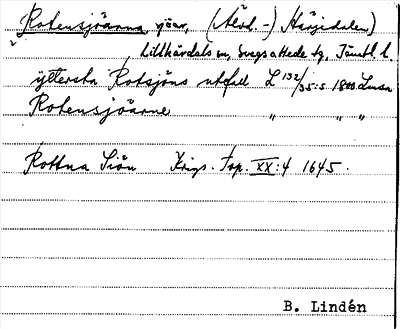 Rotensjöarna sjöar, (Älvd. -) Härjedalen)
Lillhärdals sn, Svegs alltede tg, Jämtl. l.
yttersta Rotsjöns utfall L 132/35:5 1800 Lusa
Rotensjöarne " " "
Rottna Siön Krigs. Top. XX:4 1645.
B. Lindén